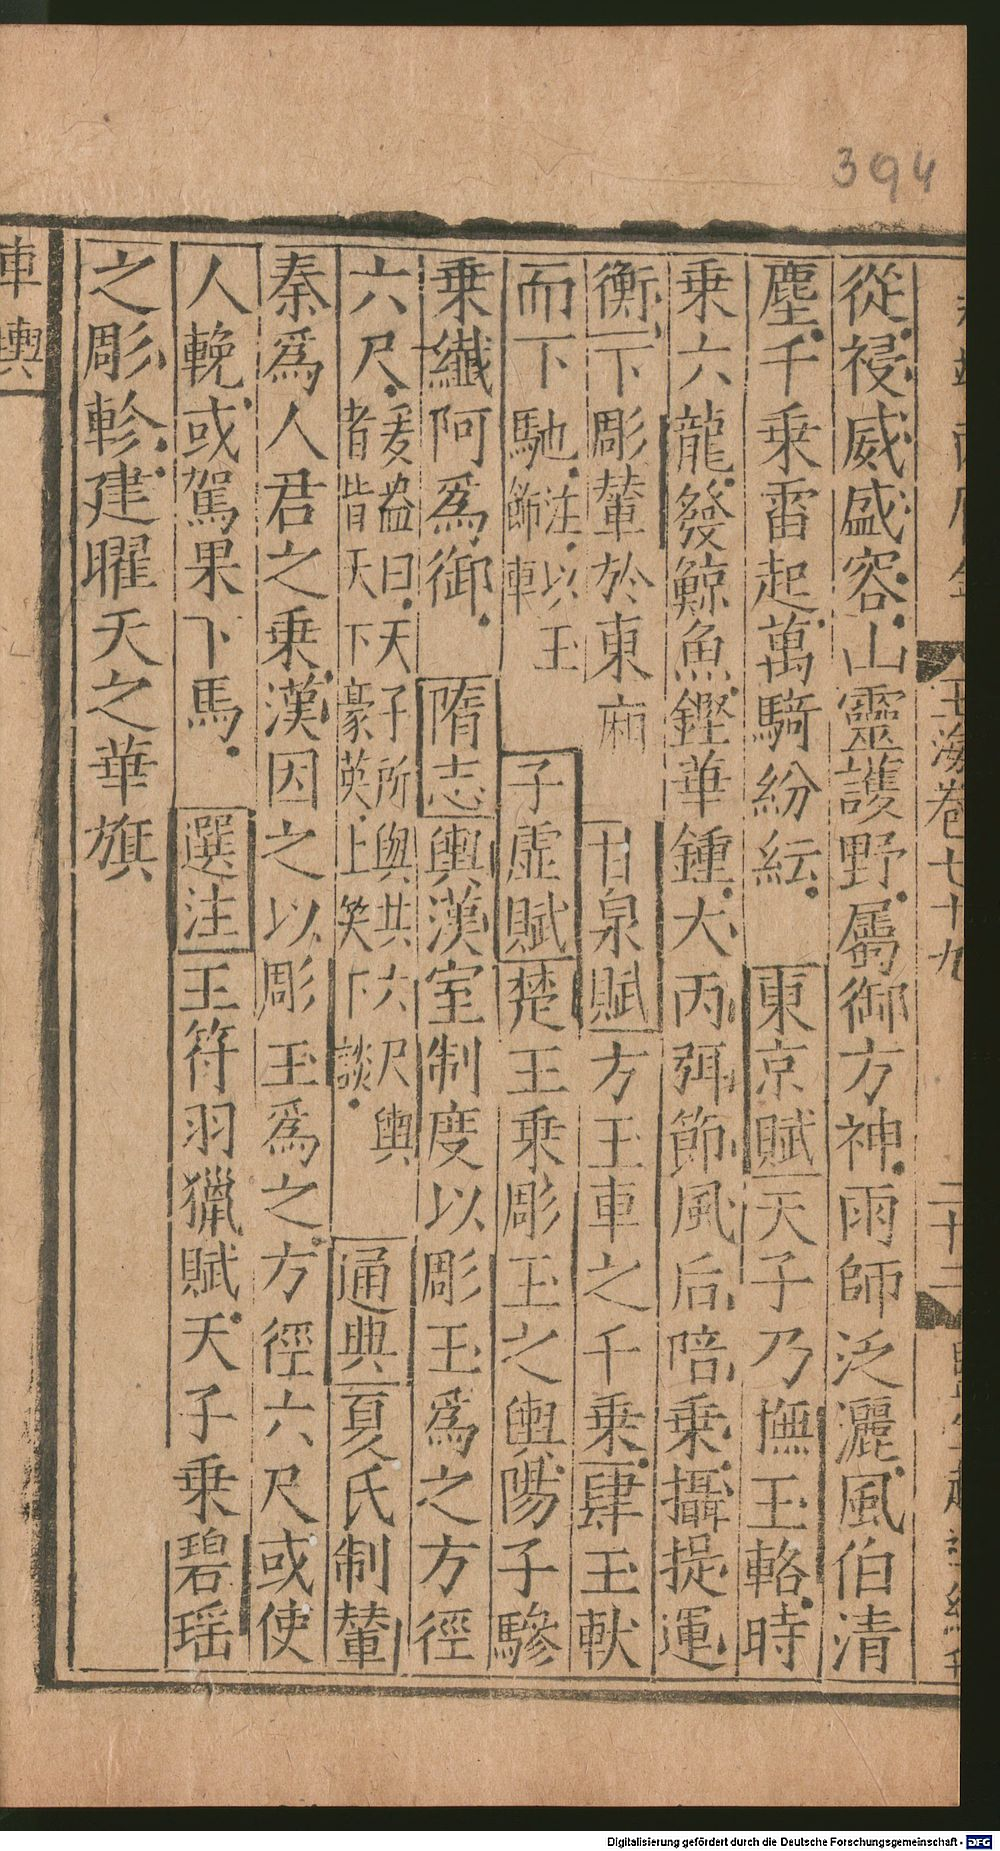 394
玉海卷七十九
二十二
從祲威盛容山靈護野屬御方神雨師泛灑風伯清
塵千乘雷起萬騎紛紜 東京賦天子乃撫玉輅時
乘六龍發鯨魚鏗華鍾大丙弭節風后陪乘攝提運
衡 下彫輦於東廂 甘泉賦方玉車之千乘肆玉軑
而下馳注以玉飾車 子虛賦楚王乘彫玉之輿陽子驂
乘纖阿爲御 隋志輿漢室制度以彫玉爲之方徑
六尺爰盎曰天子所與共六尺輿者皆天下豪英上笑下談 通典夏氏制輦
秦爲人君之乘漢因之以彫玉爲之方徑六尺或使
人輓或駕果下馬 選注王符羽獵賦天子乘碧瑶
之彫軫建曜天之華旗
車輿
Digitalisierung gefördert durch die Deutsche Forschungsgemeinschaft - DFG